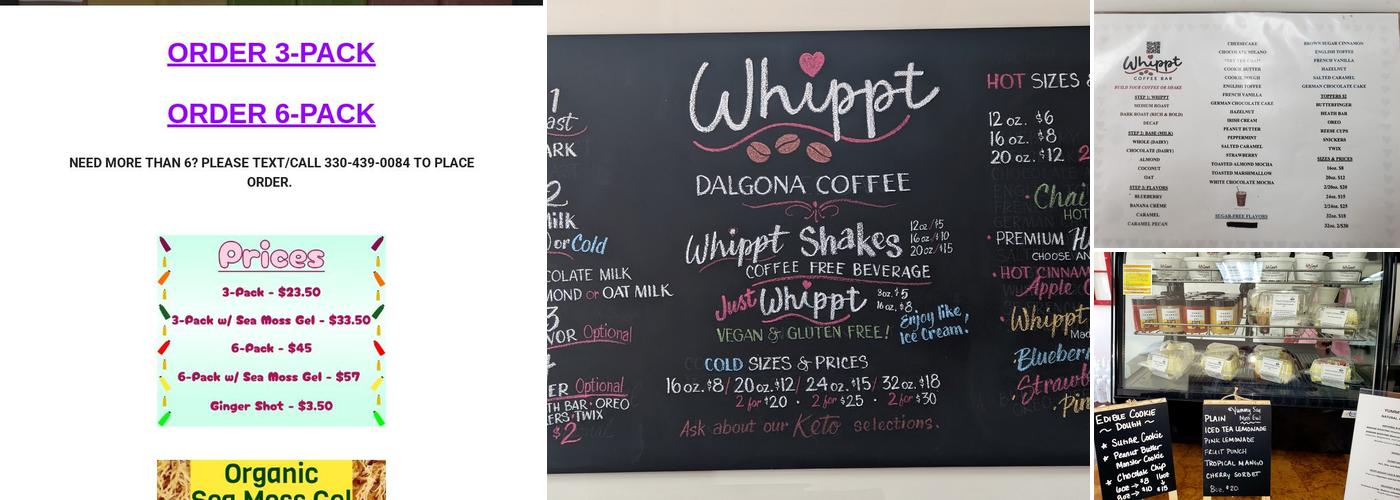 ORDER 3-PACK
ORDER 6-PACK
NEED MORE THAN 6? PLEASE TEXT/CALL 330-439-0084 TO PLACE
ORDER.
Prices
3-Pack - $23.50
3-Pack w/ Sea Moss Gel - $33.50
6-Pack - $45
6-Pack w/ Sea Moss Gel - $57
Ginger Shot - $3.50
Organic
Sea Moss Gel
Whippt
DALGONA COFFEE
Whippt Shakes
12oz/$5
16oz/$10
20oz/$15
COFFEE FREE BEVERAGE
Just Whippt
8oz. $5
16oz. $8
VEGAN & GLUTEN FREE!
Enjoy like,
Ice Cream!
COLD SIZES & PRICES
16oz. $8/ 20oz. $12/ 24oz. $15/ 32oz. $18
2 for $20 · 2 for $25 · 2 for $30
Ask about our Keto selections.
ARK
or Cold
COLATE MILK
MOND or OAT MILK
3
VOR Optional
ER Optional
TH BAR · OREO
ERS · TWIX
$2
HOT SIZES &
12 oz. $6
16 oz. $8
20 oz. $12
Chai
HOT
PREMIUM H
CHOOSE AN
HOT CINNAM
Apple C
Whippt
Blueber
Strawb
Pin
Whippt
COFFEE BAR
BUILD YOUR COFFEE OR SHAKE
STEP 1: WHIPPT
MEDIUM ROAST
DARK ROAST (RICH & BOLD)
DECAF
STEP 2: BASE (MILK)
WHOLE (DAIRY)
CHOCOLATE (DAIRY)
ALMOND
COCONUT
OAT
STEP 3: FLAVORS
BLUEBERRY
BANANA CRÈME
CARAMEL
CARAMEL PECAN
CHEESECAKE
CHOCOLATE MILANO
COOKIE BUTTER
COOKIE DOUGH
ENGLISH TOFFEE
FRENCH VANILLA
GERMAN CHOCOLATE CAKE
HAZELNUT
IRISH CREAM
PEANUT BUTTER
PEPPERMINT
SALTED CARAMEL
STRAWBERRY
TOASTED ALMOND MOCHA
TOASTED MARSHMALLOW
WHITE CHOCOLATE MOCHA
SUGAR-FREE FLAVORS
BROWN SUGAR CINNAMON
ENGLISH TOFFEE
FRENCH VANILLA
HAZELNUT
SALTED CARAMEL
GERMAN CHOCOLATE CAKE
TOPPERS $2
BUTTERFINGER
HEATH BAR
OREO
REESE CUPS
SNICKERS
TWIX
SIZES & PRICES
16oz. $8
20oz. $12
2/20oz. $20
24oz. $15
2/24oz. $25
32oz. $18
32oz. 2/$30
EDIBLE COOKIE
DOUGH
SUGAR COOKIE
PEANUT BUTTER
MONSTER COOKIE
CHOCOLATE CHIP
PLAIN
ICED TEA LEMONADE
PINK LEMONADE
FRUIT PUNCH
TROPICAL MANGO
CHERRY SORBET
8oz. $20